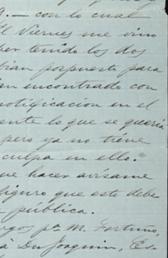 9. — con lo cual
El Viernes me vino
per tenido los dos
bian pospuesto para
ian encontrado con
notificacion en el
ente lo que se queria
pero ya no tiene
culpa en ello.
ue hacer avisame
figuro que este debe
pública.
rgo, pc M. Fortuno,
a Dn Joaquin, Es